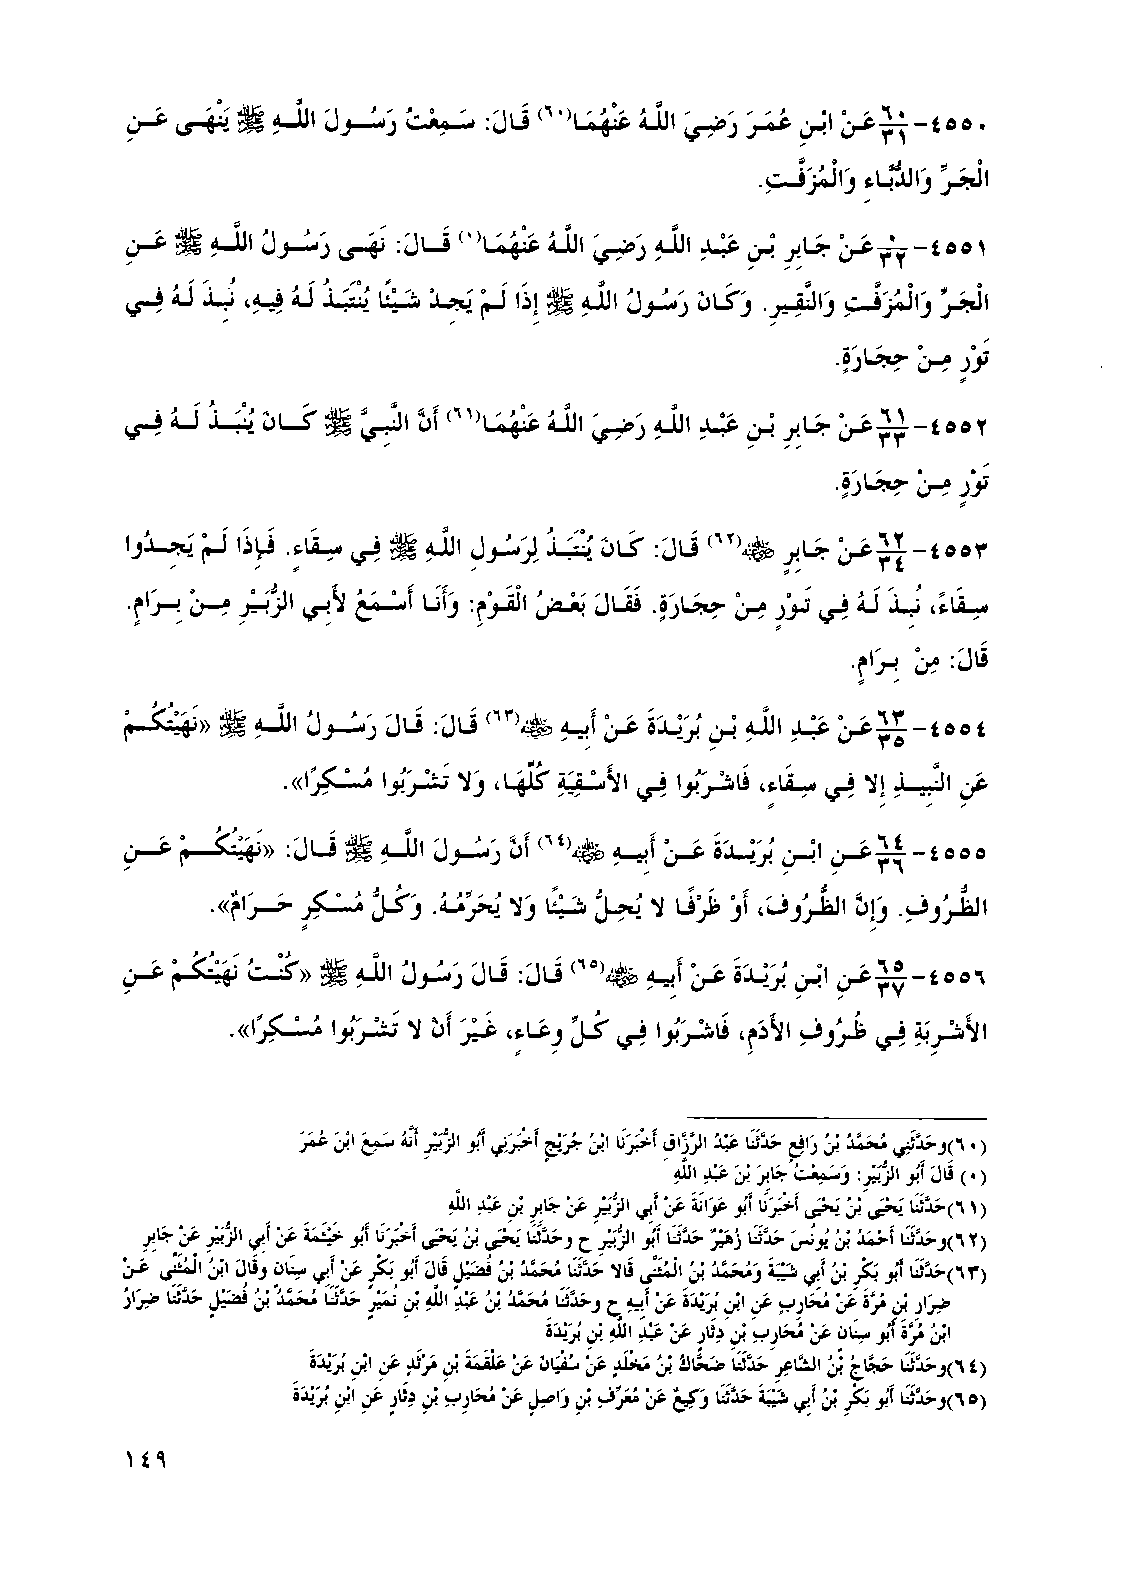 ٤٥٥٠-٦٠/٣١ عَنْ ابْنِ عُمَرَ رَضِيَ اللَّهُ عَنْهُمَا(٦٠) قَالَ: سَمِعْتُ رَسُولَ اللَّهِ ﷺ يَنْهَى عَنِ
الْجَرِّ وَالدُّبَّاءِ وَالْمُزَفَّتِ.
٤٥٥١-٠/٣٢ عَنْ جَابِرِ بْنِ عَبْدِ اللَّهِ رَضِيَ اللَّهُ عَنْهُمَا(٠) قَالَ: نَهَى رَسُولُ اللَّهِ ﷺ عَنِ
الْجَرِّ وَالْمُزَفَّتِ وَالنَّقِيرِ. وَكَانَ رَسُولُ اللَّهِ ﷺ إِذَا لَمْ يَجِدْ شَيْئًا يُنْتَبَذُ لَهُ فِيهِ، نُبِذَ لَهُ فِي
تَوْرٍ مِنْ حِجَارَةٍ.
٤٥٥٢-٦١/٣٣ عَنْ جَابِرِ بْنِ عَبْدِ اللَّهِ رَضِيَ اللَّهُ عَنْهُمَا(٦١) أَنَّ النَّبِيَّ ﷺ كَانَ يُنْبَذُ لَهُ فِي
تَوْرٍ مِنْ حِجَارَةٍ.
٤٥٥٣-٦٢/٣٤ عَنْ جَابِرٍ ﷺ(٦٢) قَالَ: كَانَ يُنْتَبَذُ لِرَسُولِ اللَّهِ ﷺ فِي سِقَاءٍ. فَإِذَا لَمْ يَجِدُوا
سِقَاءً، نُبِذَ لَهُ فِي تَوْرٍ مِنْ حِجَارَةٍ. فَقَالَ بَعْضُ الْقَوْمِ: وَأَنَا أَسْمَعُ لأَبِي الزُّبَيْرِ مِنْ بِرَامٍ.
قَالَ: مِنْ بِرَامٍ.
٤٥٥٤-٦٣/٣٥ عَنْ عَبْدِ اللَّهِ بْنِ بُرَيْدَةَ عَنْ أَبِيهِ ﷺ(٦٣) قَالَ: قَالَ رَسُولُ اللَّهِ ﷺ «نَهَيْتُكُمْ
عَنِ النَّبِيذِ إِلا فِي سِقَاءٍ، فَاشْرَبُوا فِي الأَسْقِيَةِ كُلِّهَا، وَلا تَشْرَبُوا مُسْكِرًا».
٤٥٥٥-٦٤/٣٦ عَنِ ابْنِ بُرَيْدَةَ عَنْ أَبِيهِ ﷺ(٦٤) أَنَّ رَسُولَ اللَّهِ ﷺ قَالَ: «نَهَيْتُكُمْ عَنِ
الظُّرُوفِ. وَإِنَّ الظُّرُوفَ، أَوْ ظَرْفًا لا يُحِلُّ شَيْئًا وَلا يُحَرِّمُهُ. وَكُلُّ مُسْكِرٍ حَرَامٌ».
٤٥٥٦-٦٥/٣٧ عَنِ ابْنِ بُرَيْدَةَ عَنْ أَبِيهِ ﷺ(٦٥) قَالَ: قَالَ رَسُولُ اللَّهِ ﷺ «كُنْتُ نَهَيْتُكُمْ عَنِ
الأَشْرِبَةِ فِي ظُرُوفِ الأَدَمِ، فَاشْرَبُوا فِي كُلِّ وِعَاءٍ، غَيْرَ أَنْ لا تَشْرَبُوا مُسْكِرًا».
(٦٠)وحَدَّثَنِي مُحَمَّدُ بْنُ رَافِعٍ حَدَّثَنَا عَبْدُ الرَّزَّاقِ أَخْبَرَنَا ابْنُ جُرَيْجٍ أَخْبَرَنِي أَبُو الزُّبَيْرِ أَنَّهُ سَمِعَ ابْنَ عُمَرَ
(٠) قَالَ أَبُو الزُّبَيْرِ: وَسَمِعْتُ جَابِرَ بْنَ عَبْدِ اللَّهِ
(٦١)حَدَّثَنَا يَحْيَى بْنُ يَحْيَى أَخْبَرَنَا أَبُو عَوَانَةَ عَنْ أَبِي الزُّبَيْرِ عَنْ جَابِرِ بْنِ عَبْدِ اللَّهِ
(٦٢)وحَدَّثَنَا أَحْمَدُ بْنُ يُونُسَ حَدَّثَنَا زُهَيْرٌ حَدَّثَنَا أَبُو الزُّبَيْرِ ح وحَدَّثَنَا يَحْيَى بْنُ يَحْيَى أَخْبَرَنَا أَبُو خَيْثَمَةَ عَنْ أَبِي الزُّبَيْرِ عَنْ جَابِرٍ
(٦٣)حَدَّثَنَا أَبُو بَكْرِ بْنُ أَبِي شَيْبَةَ وَمُحَمَّدُ بْنُ الْمُثَنَّى قَالا حَدَّثَنَا مُحَمَّدُ بْنُ فُضَيْلٍ قَالَ أَبُو بَكْرٍ عَنْ أَبِي سِنَانٍ وقَالَ ابْنُ الْمُثَنَّى عَنْ
ضِرَارِ بْنِ مُرَّةَ عَنْ مُحَارِبٍ عَنِ ابْنِ بُرَيْدَةَ عَنْ أَبِيهِ ح وحَدَّثَنَا مُحَمَّدُ بْنُ عَبْدِ اللَّهِ بْنِ نُمَيْرٍ حَدَّثَنَا مُحَمَّدُ بْنُ فُضَيْلٍ حَدَّثَنَا ضِرَارُ
ابْنُ مُرَّةَ أَبُو سِنَانٍ عَنْ مُحَارِبِ بْنِ دِثَارٍ عَنْ عَبْدِ اللَّهِ بْنِ بُرَيْدَةَ
(٦٤)وحَدَّثَنَا حَجَّاجُ بْنُ الشَّاعِرِ حَدَّثَنَا ضَحَّاكُ بْنُ مَخْلَدٍ عَنْ سُفْيَانَ عَنْ عَلْقَمَةَ بْنِ مَرْثَدٍ عَنِ ابْنِ بُرَيْدَةَ
(٦٥)وحَدَّثَنَا أَبُو بَكْرِ بْنُ أَبِي شَيْبَةَ حَدَّثَنَا وَكِيعٌ عَنْ مُعَرِّفِ بْنِ وَاصِلٍ عَنْ مُحَارِبِ بْنِ دِثَارٍ عَنِ ابْنِ بُرَيْدَةَ
١٤٩